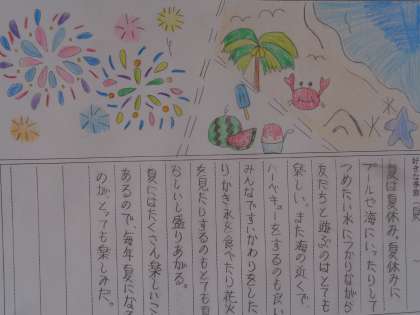 好きな季節（夏）
夏は夏休み。夏休みに
プールや海にいったりして
つめたい水につかりながら
友だちと遊ぶのはとても
楽しい。また海の近くで、
バーベキューをするのも良い
みんなですいかわりをした
りかき氷を食べたり花火
を見たりするのもとても夏
らしいし盛りあがる。
夏にはたくさん楽しいこ
あるので、毎年夏になる
のがとっても楽しみだ。